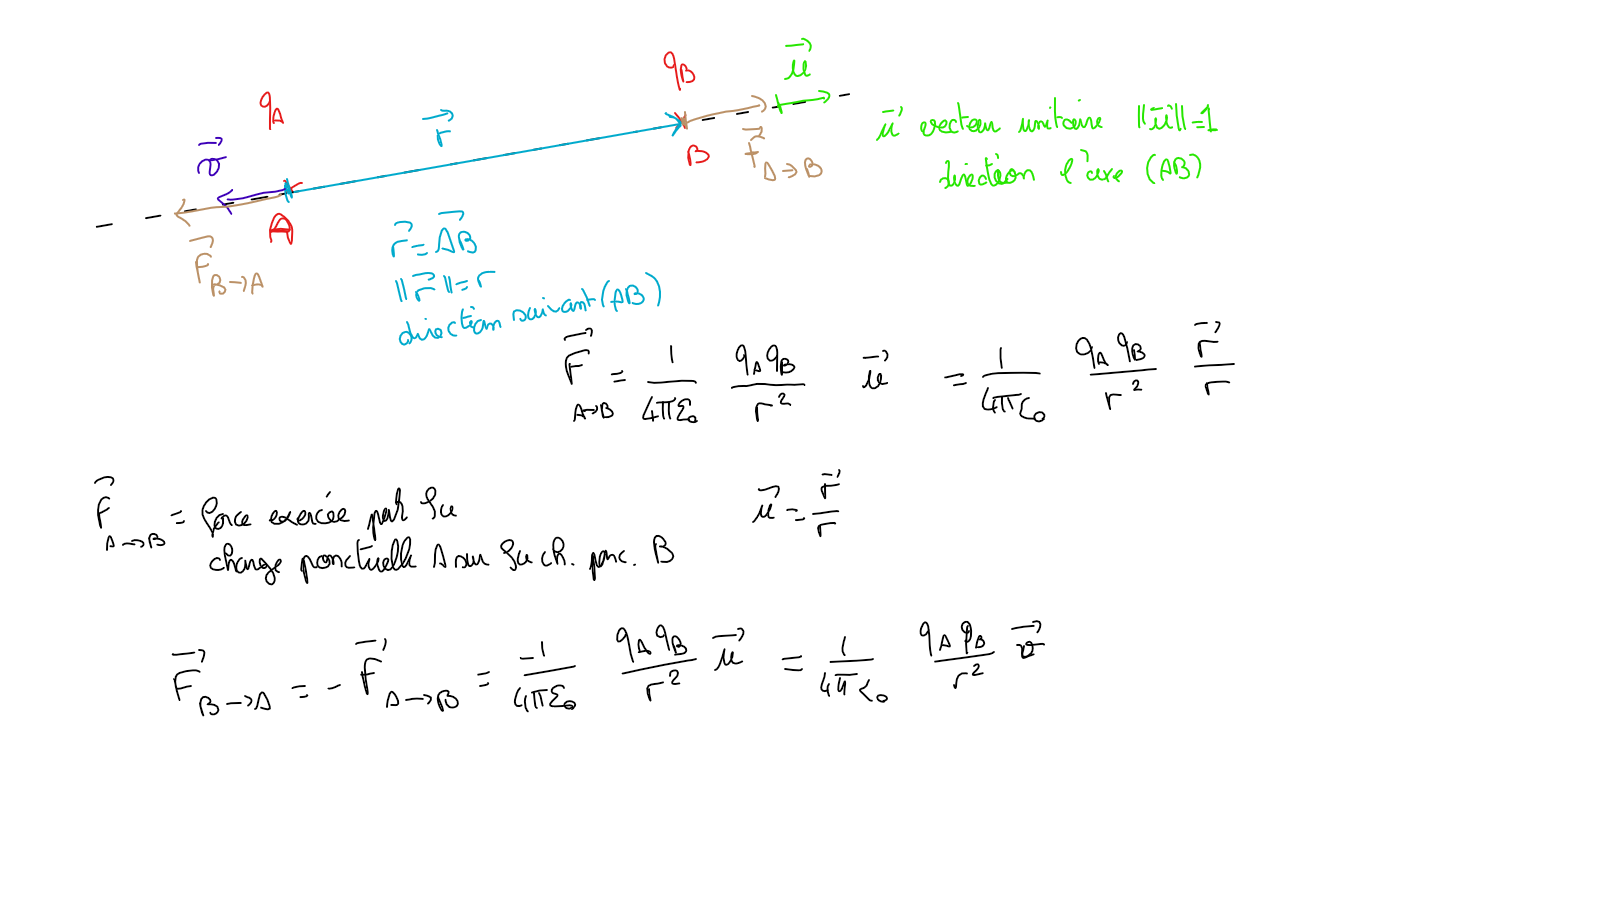 q_B
\vec{u}
q_A
\vec{r}
\vec{u} vecteur unitaire ||\vec{u}||=1
\vec{v}
B
\vec{F}_{A→B}
direction l'axe (AB)
A
\vec{F}_{B→A}
\vec{r} = \vec{AB}
||\vec{r}|| = r
direction suivant (AB)
\vec{F}_{A→B} = \frac{1}{4πε_0} \frac{q_A q_B}{r^2} \vec{u} = \frac{1}{4πε_0} \frac{q_A q_B}{r^2} \frac{\vec{r}}{r}
\vec{F}_{A→B} = force exercée par la
\vec{u} = \frac{\vec{r}}{r}
charge ponctuelle A sur la ch. ponc. B
\vec{F}_{B→A} = - \vec{F}_{A→B} = \frac{-1}{4πε_0} \frac{q_A q_B}{r^2} \vec{u} = \frac{1}{4πε_0} \frac{q_A q_B}{r^2} \vec{v}